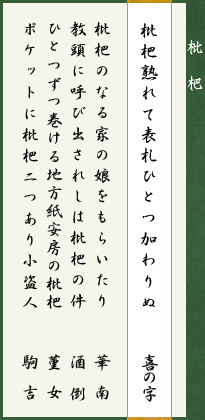 枇杷
枇杷熟れて表札ひとつ加わりぬ 喜の字
枇杷のなる家の娘をもらいたり 華南
教頭に呼び出されしは枇杷の件 酒倒
ひとつずつ巻ける地方紙安房の枇杷 菫女
ポケットに枇杷二つあり小盗人 駒吉